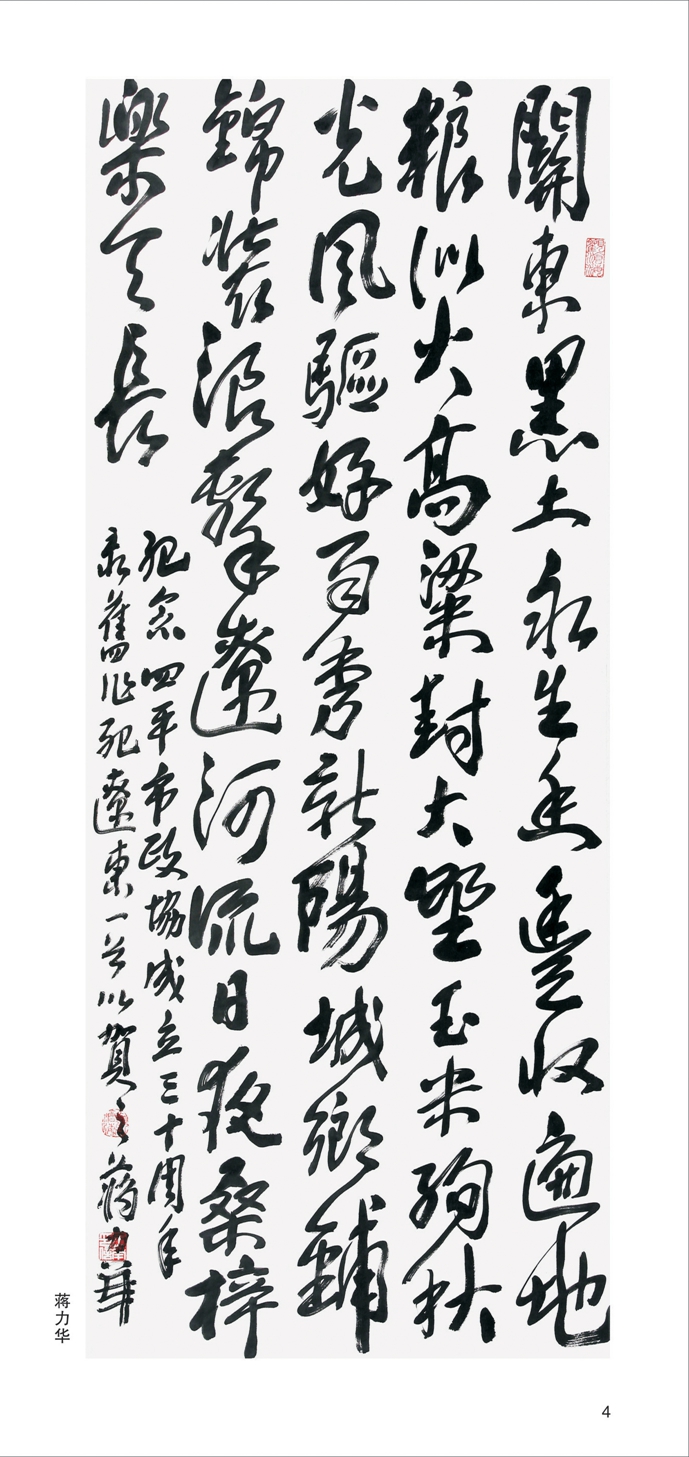 關東黑土永生香豐收遍地
糧似火高粱封大壑玉米絢秋
光風驅好雨秀新陽城鄉鋪
錦裝浪擊遼河流日夜桑梓
樂天長
紀念四平市政協成立三十周年
录舊作遼東一首以賀之蔣力華
蒋力华
4